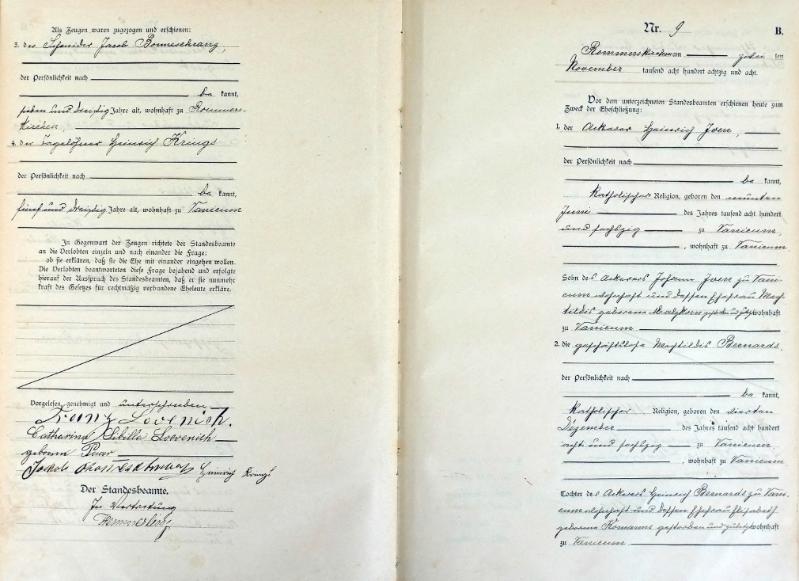 Als Zeugen waren zugezogen und erschienen:
3. der Schneider Jacob
der Persönlichkeit nach
be kannt,
sieben und dreißig Jahre alt, wohnhaft zu Rommers-
kirchen,
4. der Tagelöhner Heinrich Krengs
der Persönlichkeit nach
be kannt,
fünf und dreißig Jahre alt, wohnhaft zu Vanicum
In Gegenwart der Zeugen richtete der Standesbeamte
an die Verlobten einzeln und nach einander die Frage:
ob sie erklären, daß sie die Ehe mit einander eingehen wollen.
Die Verlobten beantworteten diese Frage bejahend und erfolgte
hierauf der Ausspruch des Standesbeamten, daß er sie nunmehr
kraft des Gesetzes für rechtmäßig verbundene Eheleute erkläre.
Vorgelesen, genehmigt und unterschrieben
Franz Loevenich.
Catharina Sibilla Loevenich
geborene
Jakob
Heinrich Krengs
Der Standesbeamte.
In Vertretung
Nr. 9
B.
Rommerskirchen zehn ten
November tausend acht hundert achtzig und acht.
Vor dem unterzeichneten Standesbeamten erschienen heute zum
Zweck der Eheschließung:
1. der Ackerer Heinrich Iven,
der Persönlichkeit nach
be kannt,
katholischer Religion, geboren den neunten
Juni des Jahres tausend acht hundert
und sechszig zu Vanicum
, wohnhaft zu Vanicum
Sohn des Ackerers Johann Iven zu Vani-
cum wohnhaft und dessen Ehefrau Mech-
tildis geborene und zuletzt wohnhaft
zu Vanicum
2. die geschäftslose Mechtildis Bernards
der Persönlichkeit nach
be kannt,
katholischer Religion, geboren den vierten
Dezember des Jahres tausend acht hundert
acht und sechszig zu Vanicum
, wohnhaft zu Vanicum
Tochter des Ackerers Heinrich Bernards zu Vani-
cum wohnhaft und dessen Ehefrau Elisabeth
geborene Komanns gestorben und zuletzt wohnhaft
zu Vanicum